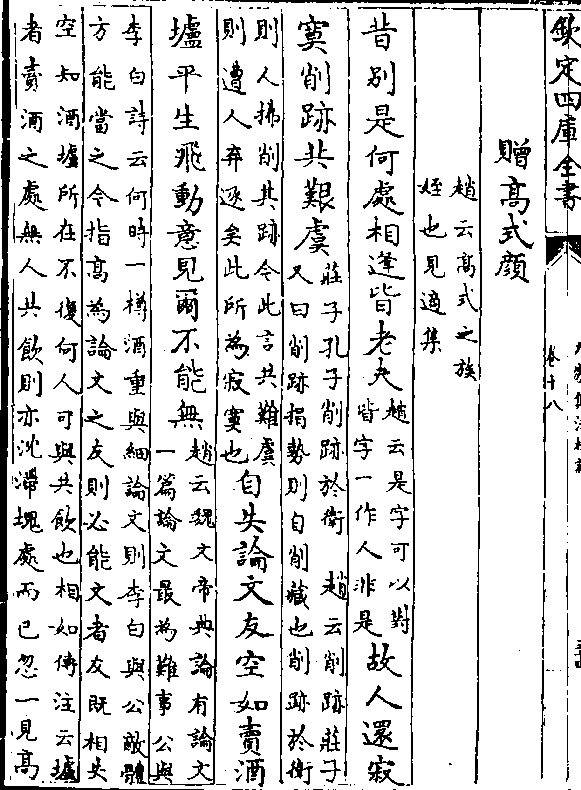 欽定四庫全書
卷十八
贈高式顔
趙云高式之族
姪也見適集
昔别是何處相逢皆老夫
趙云是字可以對
皆字一作人非是
故人還寂
寞削跡共艱虞
莊子孔子削跡於衛　趙云削跡莊子
又曰削跡捐勢則自削藏也削跡於衛
則人掃削其跡今此言共難虞
則遭人弃逐矣此所為寂寞也
自失論文友空如賣酒
壚平生飛動意見爾不能無
趙云魏文帝典論有論文
一篇論文最為難事公與
李白詩云何時一樽酒重與細論文則李白與公敵體
方能當之今指高為論文之友則必能文者友既相失
空知酒壚所在不復何人可與共飲也相如傳注云壚
者賣酒之處無人共飲則亦沈滯塊處而已忽一見高